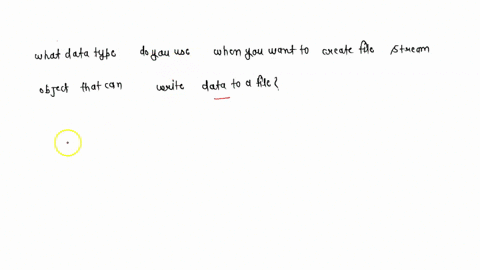 what data type do you use when you want to create file stream
object that can write data to a file?